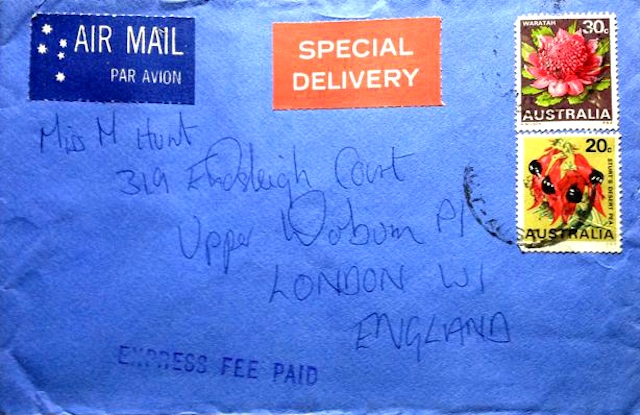 AIR MAIL
PAR AVION
SPECIAL
DELIVERY
WARATAH
30c
AUSTRALIA
20c
STURT'S DESERT PEA
AUSTRALIA
Miss M Hunt
319 Endsleigh Court
Upper Woburn Pl
LONDON W1
ENGLAND
EXPRESS FEE PAID